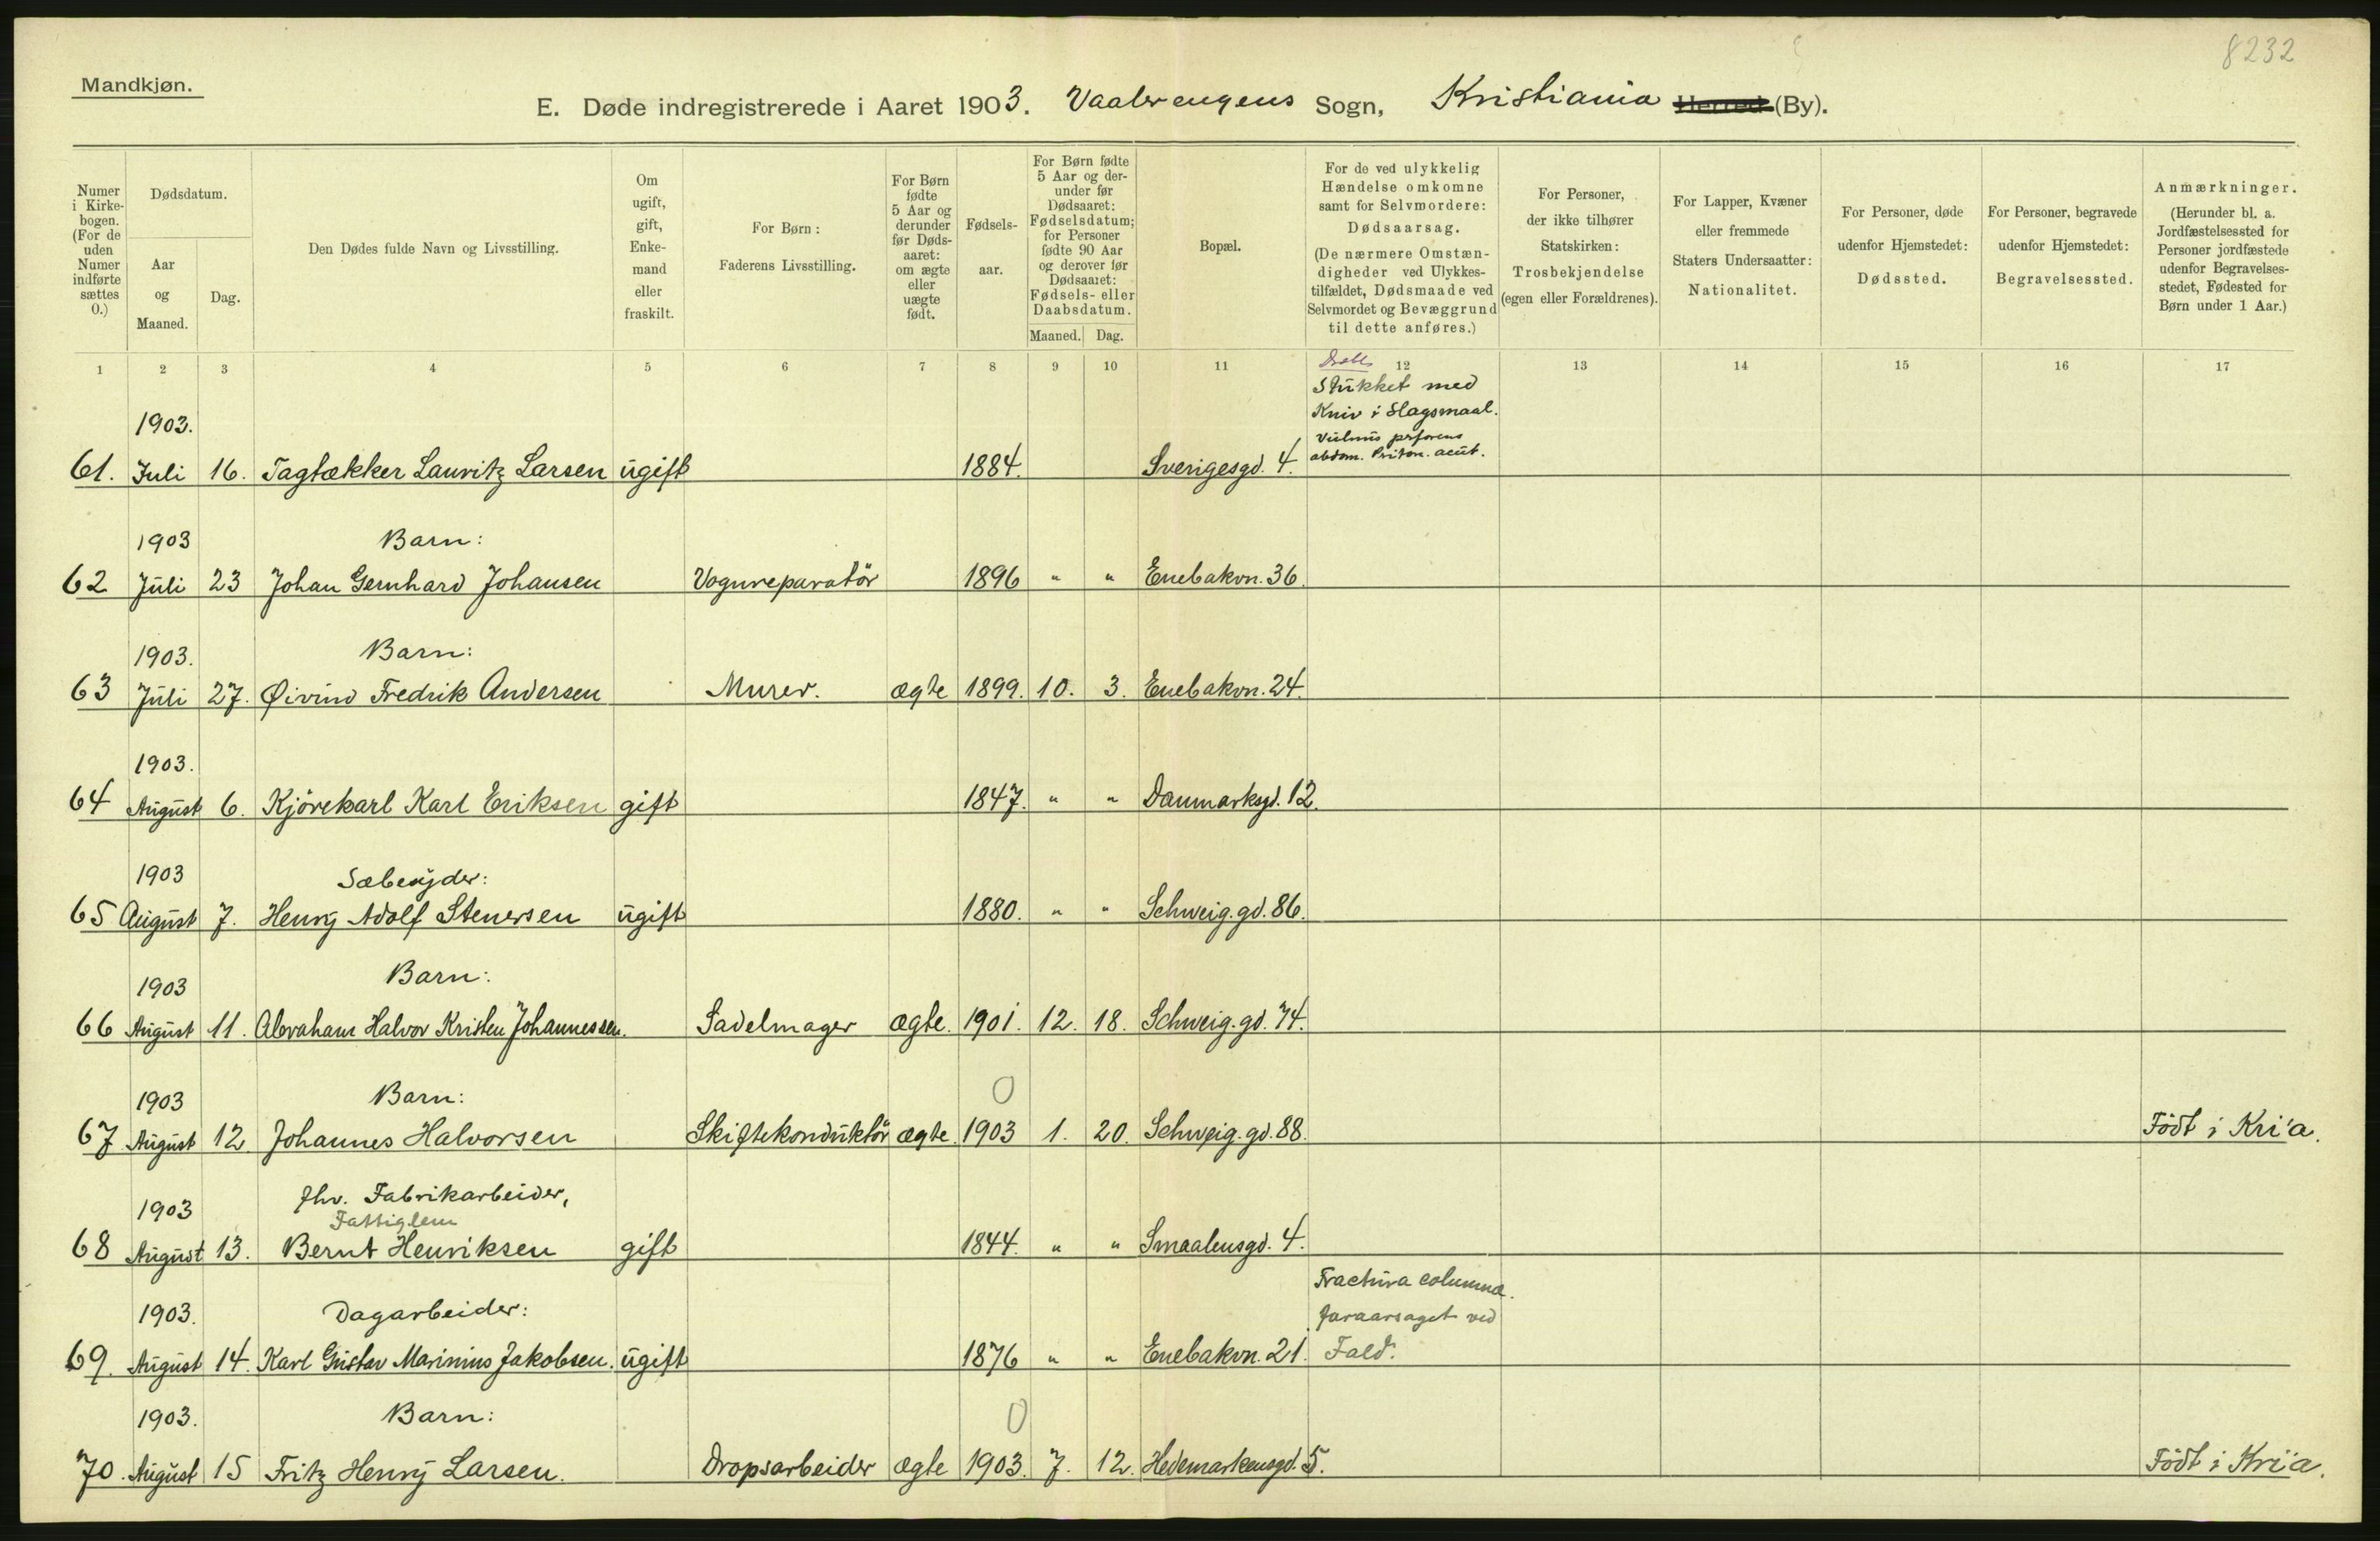 8232
Mandkjøn.
E. Døde indregistrerede i Aaret 1903. Vaalerengens Sogn, Kristiania Herred (By).
Numer i Kirkebogen. (For de uden Numer indførte sættes 0.)
Dødsdatum.
Aar og Maaned.
Dag.
Den Dødes fulde Navn og Livsstilling.
Om ugift, gift, Enkemand eller fraskilt.
For Børn: Faderens Livsstilling.
For Børn fødte 5 Aar og derunder før Dødsaaret: om ægte eller uægte født.
Fødselsaar.
For Børn fødte 5 Aar og derunder før Dødsaaret: Fødselsdatum; for Personer fødte 90 Aar og derover før Dødsaaret: Fødsels- eller Daabsdatum.
Maaned. Dag.
Bopæl.
For de ved ulykkelig Hændelse omkomne samt for Selvmordere: Dødsaarsag. (De nærmere Omstændigheder ved Ulykkestilfældet, Dødsmaade ved Selvmordet og Bevæggrund til dette anføres.)
For Personer, der ikke tilhører Statskirken: Trosbekjendelse (egen eller Forældrenes).
For Lapper, Kvæner eller fremmede Staters Undersaatter: Nationalitet.
For Personer, døde udenfor Hjemstedet: Dødssted.
For Personer, begravede udenfor Hjemstedet: Begravelsessted.
Anmærkninger. (Herunder bl. a. Jordfæstelsessted for Personer jordfæstede udenfor Begravelsesstedet, Fødested for Børn under 1 Aar.)
1 2 3 4 5 6 7 8 9 10 11 12 13 14 15 16 17
Stukket med
Kniv i Slagsmaal.
1903.
Vulnus prforens
abdom. Priton. acut.
61. Juli 16. Tagtækker Lauritz Larsen ugift 1884. Sverigesgd. 4.
1903 Barn:
62 Juli 23 Johan Gernhard Johansen Vognreparatör 1896 " " Enebakvn. 36.
1903. Barn:
63 Juli 27. Øivind Fredrik Andersen Murer. ægte 1899. 10. 3. Enebakvn. 24.
1903.
64 August 6. Kjörekarl Karl Eriksen gift 1847. " " Danmarksgd. 12.
1903 Sæbesyder:
65 August 7. Henry Adolf Stenersen ugift 1880. " " Schweig. gd. 86.
1903 Barn:
66 August 11. Abraham Halvor Kristen Johannessen. Sadelmager ægte. 1901. 12. 18. Schweig. gd. 74.
1903 Barn: 0
67 August 12. Johannes Halvorsen Skiftekonduktör ægte. 1903 1. 20. Schweig. gd. 88. Födt i Kri'a.
1903 fhv. Fabrikarbeider,
Fattiglem
68 August 13. Bernt Henriksen gift 1844. " " Smaalensgd. 4.
Fractura columna.
1903. Dagarbeider: foraarsaget ved
69. August 14. Karl Gustav Marinius Jakobsen. ugift 1876 " " Enebakvn. 21. Fald.
1903. Barn: 0
70. August 15 Fritz Henry Larsen. Dropsarbeider ægte 1903. 7. 12. Hedemarkensgd. 5. Födt i Kri'a.